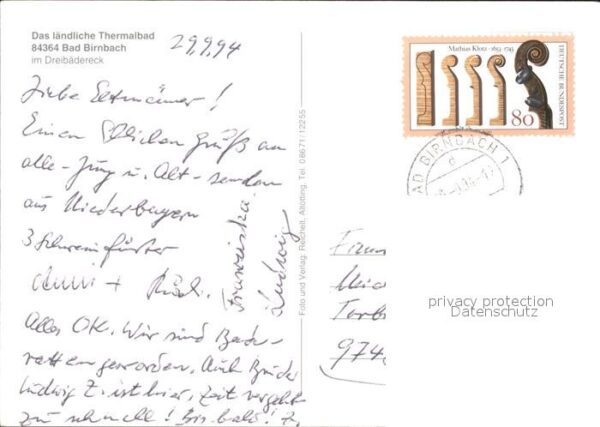 Das ländliche Thermalbad
84364 Bad Birnbach
im Dreibädereck
29.9.94
Liebe
Einen Gruß an
alle - Jung u. Alt - senden
aus Niederbayern
3 Schweinfurter
+
Franziska
Ludwig
Alles OK. Wir sind Bade-
ratten geworden. Auch Bruder
Ludwig Z. ist hier, Zeit vergeht
zu schnell! Bis bald!
Foto und Verlag: Reichelt, Altötting, Tel. 08671-12255
Mathias Klotz · 1653-1743
80
DEUTSCHE BUNDESPOST
BAD BIRNBACH 1
d
Fam
974
privacy protection
Datenschutz